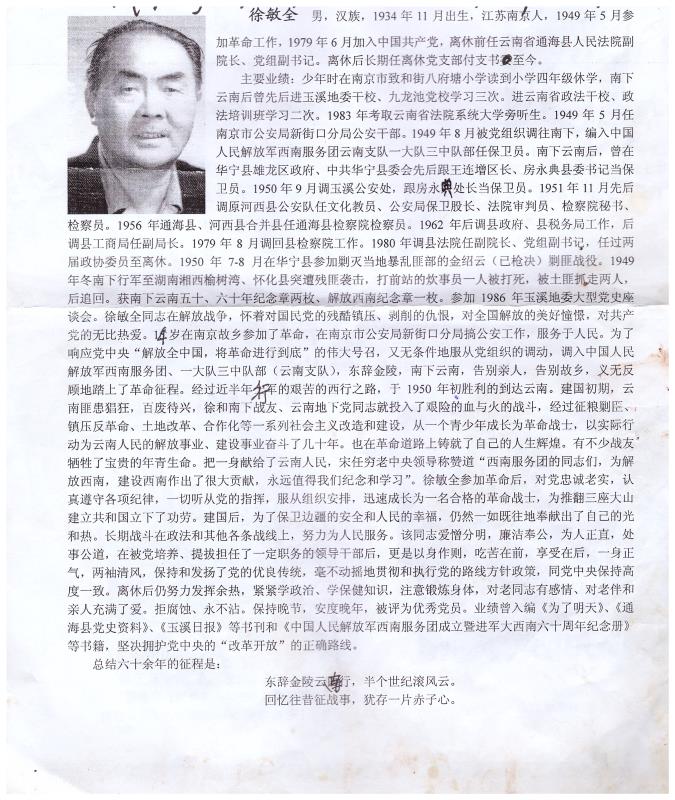 徐敏全 男，汉族，1934年11月出生，江苏南京人，1949年5月参
加革命工作，1979年6月加入中国共产党，离休前任云南省通海县人民法院副
院长、党组副书记。离休后长期任离休党支部付支书至今。
主要业绩：少年时在南京市致和街八府塘小学读到小学四年级休学，南下
云南后曾先后进玉溪地委干校、九龙池党校学习三次。进云南省政法干校、政
法培训班学习二次。1983年考取云南省法院系统大学旁听生。1949年5月任
南京市公安局新街口分局公安干部。1949年8月被党组织调往南下，编入中国
人民解放军西南服务团云南支队一大队三中队部任保卫员。南下云南后，曾在
华宁县雄龙区政府、中共华宁县委会先后跟王连增区长、房永典县委书记当保
卫员。1950年9月调玉溪公安处，跟房永典处长当保卫员。1951年11月先后
调原河西县公安队任文化教员、公安局保卫股长、法院审判员、检察院秘书、
检察员。1956年通海县、河西县合并县任通海县检察院检察员。1962年后调县政府、县税务局工作，后
调县工商局任副局长。1979年8月调回县检察院工作。1980年调县法院任副院长、党组副书记，任过两
届政协委员至离休。1950年7-8月在华宁县参加剿灭当地暴乱匪部的金绍云（已枪决）剿匪战役。1949
年冬南下行军至湖南湘西榆树湾、怀化县突遭残匪袭击，打前站的炊事员一人被打死，被土匪抓走两人，
后追回。获南下云南五十、六十年纪念章两枚、解放西南纪念章一枚。参加1986年玉溪地委大型党史座
谈会。徐敏全同志在解放战争，怀着对国民党的残酷镇压、剥削的仇恨，对全国解放的美好憧憬，对共产
党的无比热爱。14岁在南京故乡参加了革命，在南京市公安局新街口分局搞公安工作，服务于人民。为了
响应党中央“解放全中国，将革命进行到底”的伟大号召，又无条件地服从党组织的调动，调入中国人民
解放军西南服务团、一大队三中队部（云南支队），东辞金陵，南下云南，告别亲人，告别故乡，义无反
顾地踏上了革命征程。经过近半年行军的艰苦的西行之路，于1950年初胜利的到达云南。建国初期，云
南匪患猖狂，百废待兴，徐和南下战友、云南地下党同志就投入了艰险的血与火的战斗，经过征粮剿匪、
镇压反革命、土地改革、合作化等一系列社会主义改造和建设，从一个青少年成长为革命战士，以实际行
动为云南人民的解放事业、建设事业奋斗了几十年。也在革命道路上铸就了自己的人生辉煌。有不少战友
牺牲了宝贵的年青生命。把一身献给了云南人民，宋任穷老中央领导称赞道“西南服务团的同志们，为解
放西南，建设西南作出了很大贡献，永远值得我们纪念和学习”。徐敏全参加革命后，对党忠诚老实，认
真遵守各项纪律，一切听从党的指挥，服从组织安排，迅速成长为一名合格的革命战士，为推翻三座大山
建立共和国立下了功劳。建国后，为了保卫边疆的安全和人民的幸福，仍然一如既往地奉献出了自己的光
和热。长期战斗在政法和其他各条战线上，努力为人民服务。该同志爱憎分明，廉洁奉公，为人正直，处
事公道，在被党培养、提拔担任了一定职务的领导干部后，更是以身作则，吃苦在前，享受在后，一身正
气，两袖清风，保持和发扬了党的优良传统，毫不动摇地贯彻和执行党的路线方针政策，同党中央保持高
度一致。离休后仍努力发挥余热，紧紧学政治、学保健知识，注意锻炼身体，对老同志有感情、对老伴和
亲人充满了爱。拒腐蚀、永不沾。保持晚节，安度晚年，被评为优秀党员。业绩曾入编《为了明天》、《通
海县党史资料》、《玉溪日报》等书刊和《中国人民解放军西南服务团成立暨进军大西南六十周年纪念册》
等书籍，坚决拥护党中央的“改革开放”的正确路线。
总结六十余年的征程是：
东辞金陵云南行，半个世纪滚风云。
回忆往昔征战事，犹存一片赤子心。